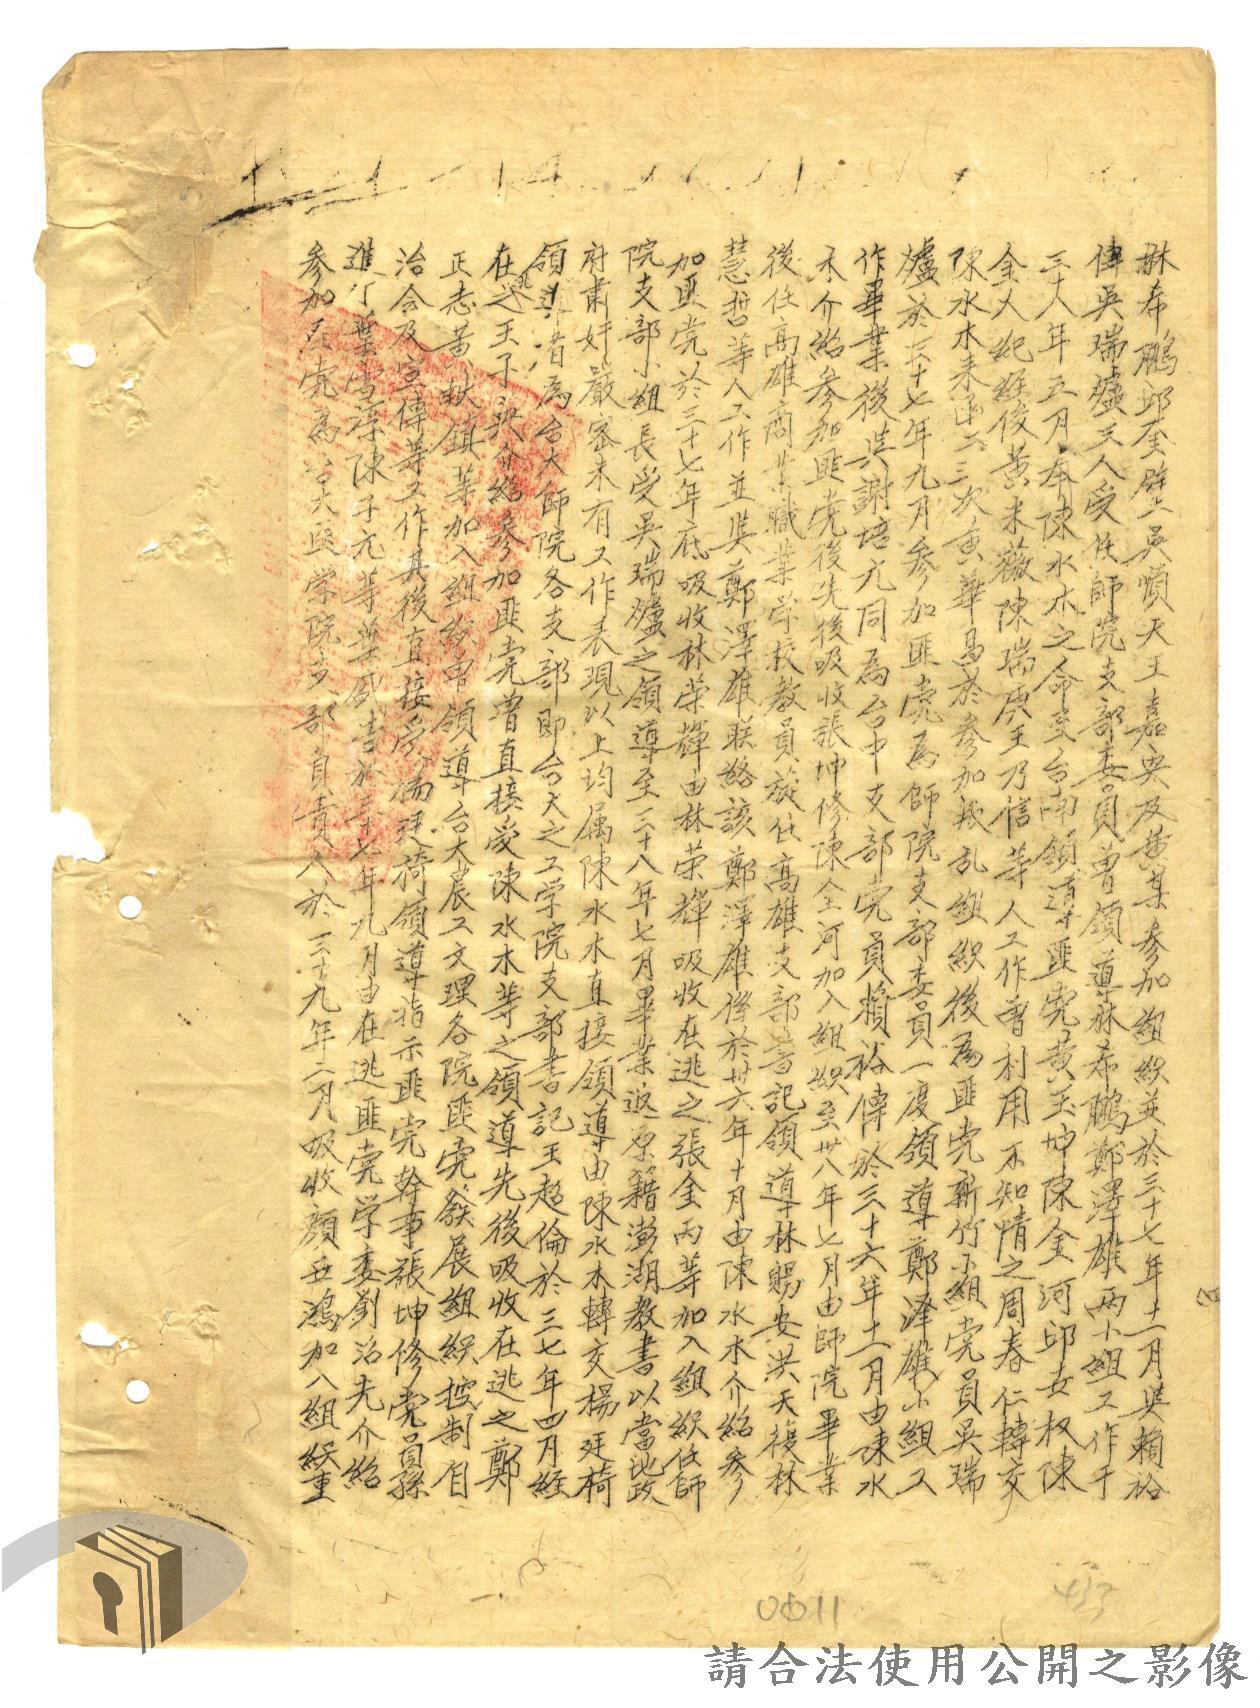 林希鵬邱奎壁吳順天王嘉央及黃某參加組織並於三十七年十一月與賴裕
傳吳瑞爐三人受任師院支部委員曾領導林希鵬鄭澤雄兩小組工作于
三十八年五月奉陳水木之命至台南領導匪党黃玉坤陳金河邱女权陳
金火紀經俊黃末薇陳瑞庚王乃信等人工作曾利用不知情之周春仁轉交
陳水木来函二三次黃華昌於參加叛乱組織後為匪党新竹小組党員吳瑞
爐於三十七年九月參加匪党為師院支部委員一度領導鄭澤雄小組工
作畢業後與謝培元同為台中支部党員賴裕傳於三十六年十一月由陳水
木介紹參加匪党後先後吸收張坤修陳全河加入組織至卅八年七月由師院畢業
後任高雄商業職業学校教員旋任高雄支部書記領導林賜安洪天復林
慧哲等人工作並與鄭澤雄联絡該鄭澤雄係於卅六年十月由陳水木介紹參
加匪党於三十七年底吸收林荣輝由林荣輝吸收在逃之張金丙等加入組織任師
院支部小組長受吳瑞爐之領導至三十八年七月畢業返原籍澎湖教書以當地政
府肅奸嚴密未有工作表現以上均属陳水木直接領導由陳水木轉交楊廷椅
領導者為台大師院各支部即台大之工学院支部書記王超倫於三七年四月經
在逃之王子英介紹參加匪党曾直接受陳水木等之領導先後吸收在逃之鄭
正志黃猷鎮葉加入組織曾領導台大農工文理各院匪党發展組織控制自
治会及宣傳等工作其後直接受楊廷椅領導指示匪党幹事張坤修党員孫
進丁葉雪淳陳子元等葉盛吉於三十七年九月由在逃匪党学委劉沼光介紹
參加匪党為台大医学院支部負責人於三十九年二月吸收顏世鴻加入組織重
0011
請合法使用公開之影像